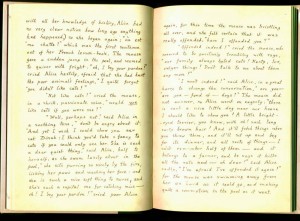 with all her knowledge of history, Alice had
no very clear notion how long ago anything
had happened,) so she began again, "où est
ma chatte?" which was the first sentence
out of her French lesson-book. The mouse
gave a sudden jump in the pool, and seemed
to quiver with fright. "oh, I beg your pardon!"
cried Alice hastily, afraid that she had hurt
the poor animal's feelings, "I quite forgot
you didn't like cats!"
"Not like cats!" cried the mouse,
in a shrill, passionate voice, "would you
like cats if you were me?"
"Well, perhaps not," said Alice in
a soothing tone, "don't be angry about it.
And yet I wish I could show you our
cat Dinah: I think you'd take a fancy to
cats if you could only see her. She is such
a dear quiet thing," said Alice, half to
herself, as she swam lazily about in the
pool, "she sits purring so nicely by the fire,
licking her paws and washing her face: and
she is such a nice soft thing to nurse, and
she's such a capital one for catching mice—
oh! I beg your pardon!" cried poor Alice
again, for this time the mouse was bristling
all over, and she felt certain that it was
really offended, "have I offended you?"
"Offended indeed!" cried the mouse, who
seemed to be positively trembling with rage,
"our family always hated cats! Nasty, low,
vulgar things! Don't talk to me about them
any more!"
"I won't indeed!" said Alice, in a great
hurry to change the conversation, "are you—
are you—fond of—of dogs?" The mouse did
not answer, so Alice went on eagerly: "there
is such a nice little dog near our house
I should like to show you! A little bright-
eyed terrier, you know, with oh! such long
curly brown hair! And it'll fetch things when
you throw them, and it'll sit up and beg
for its dinner, and all sorts of things—I
can't remember half of them—and it
belongs to a farmer, and he says it kills
all the rats and—oh dear!" said Alice
sadly, "I'm afraid I've offended it again!"
for the mouse was swimming away from
her as hard as it could go, and making
quite a commotion in the pool as it went.